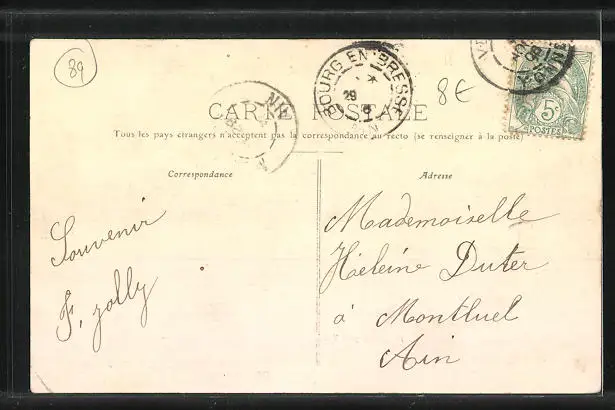 89
BOURG EN BRESSE
29
8€
5c
POSTES
CARTE POSTALE
Tous les pays étrangers n'acceptent pas la correspondance au recto (se renseigner à la poste)
Correspondance
Adresse
Souvenir
F, Jolly
Mademoiselle
Héleine Duter
à Montluel
Ain